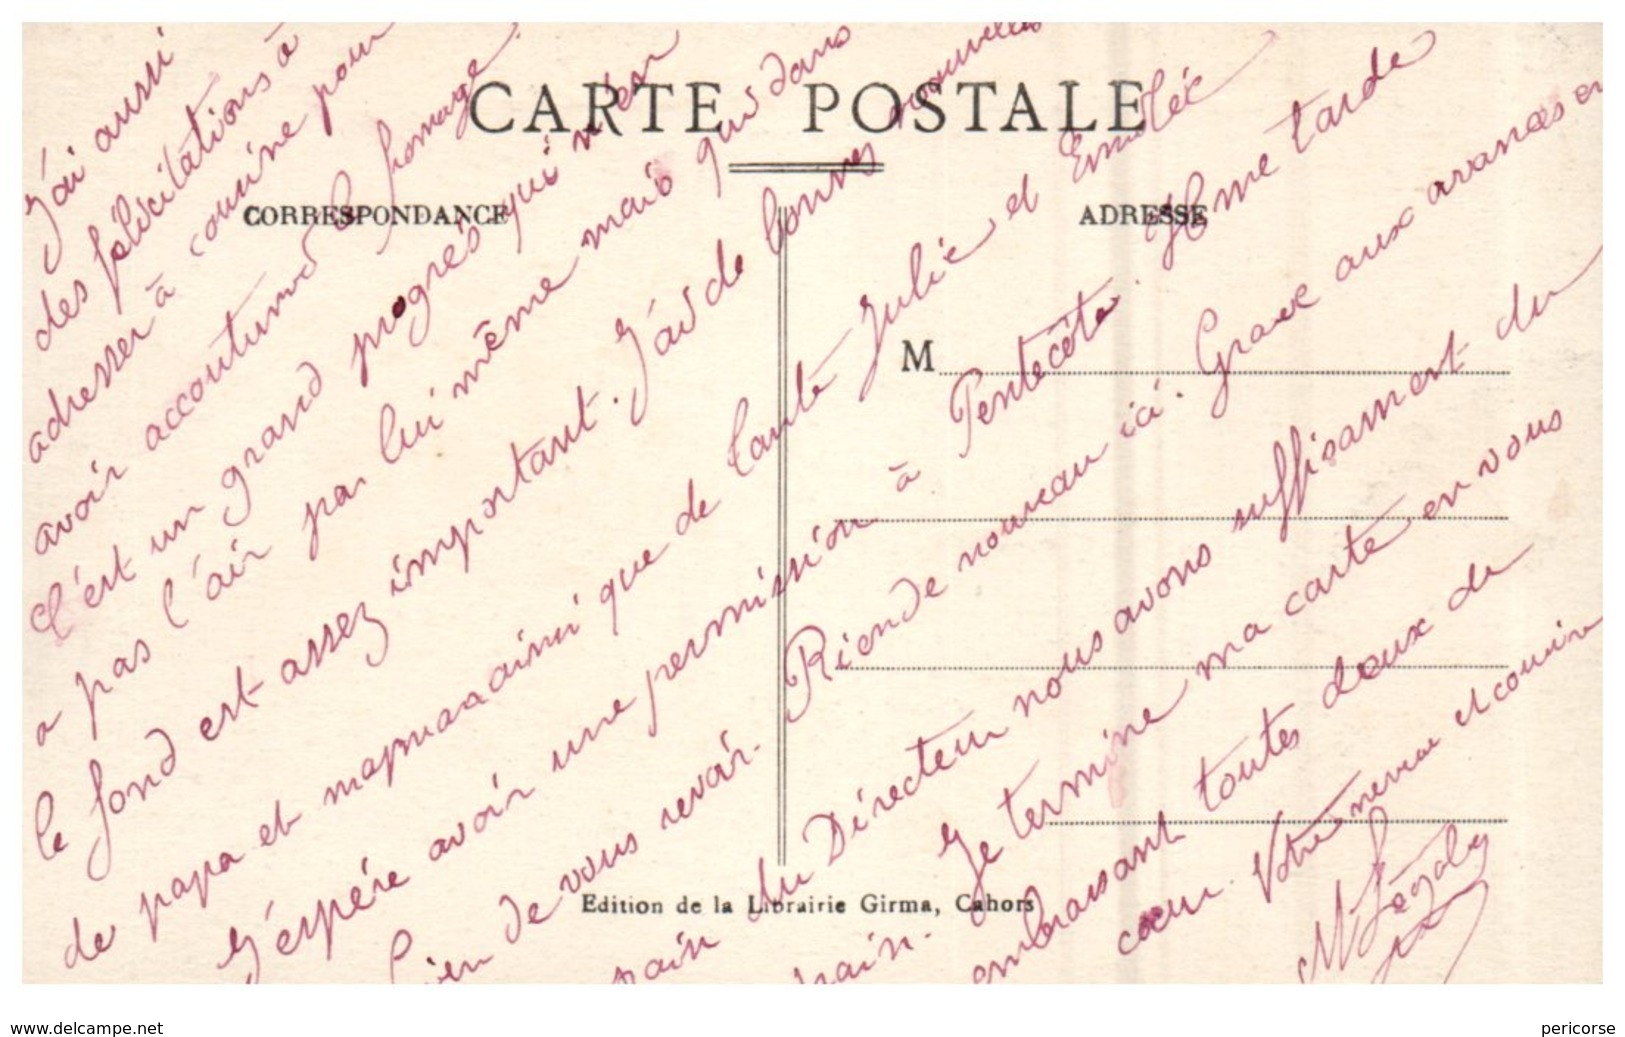 CARTE POSTALE
CORRESPONDANCE
ADRESSE
M
J'ai aussi
des félicitations à
adresser à cousine pour
avoir accoutumé le fromage.
C'est un grand progrès qui n'en
a pas l'air par lui même mais qui dans
le fond est assez important. J'ai de bonnes nouvelles
de papa et maman ainsi que de tante Julie et
J'espère avoir une permission à Pentecôte. Il me tarde
bien de vous revoir. Rien de nouveau ici. Grace aux avances en
pain du Directeur nous avons suffisament du
pain. Je termine ma carte en vous
embrassant toutes deux de
cœur. Votre neveu et cousin
Edition de la Librairie Girma, Cahors
www.delcampe.net
pericorse